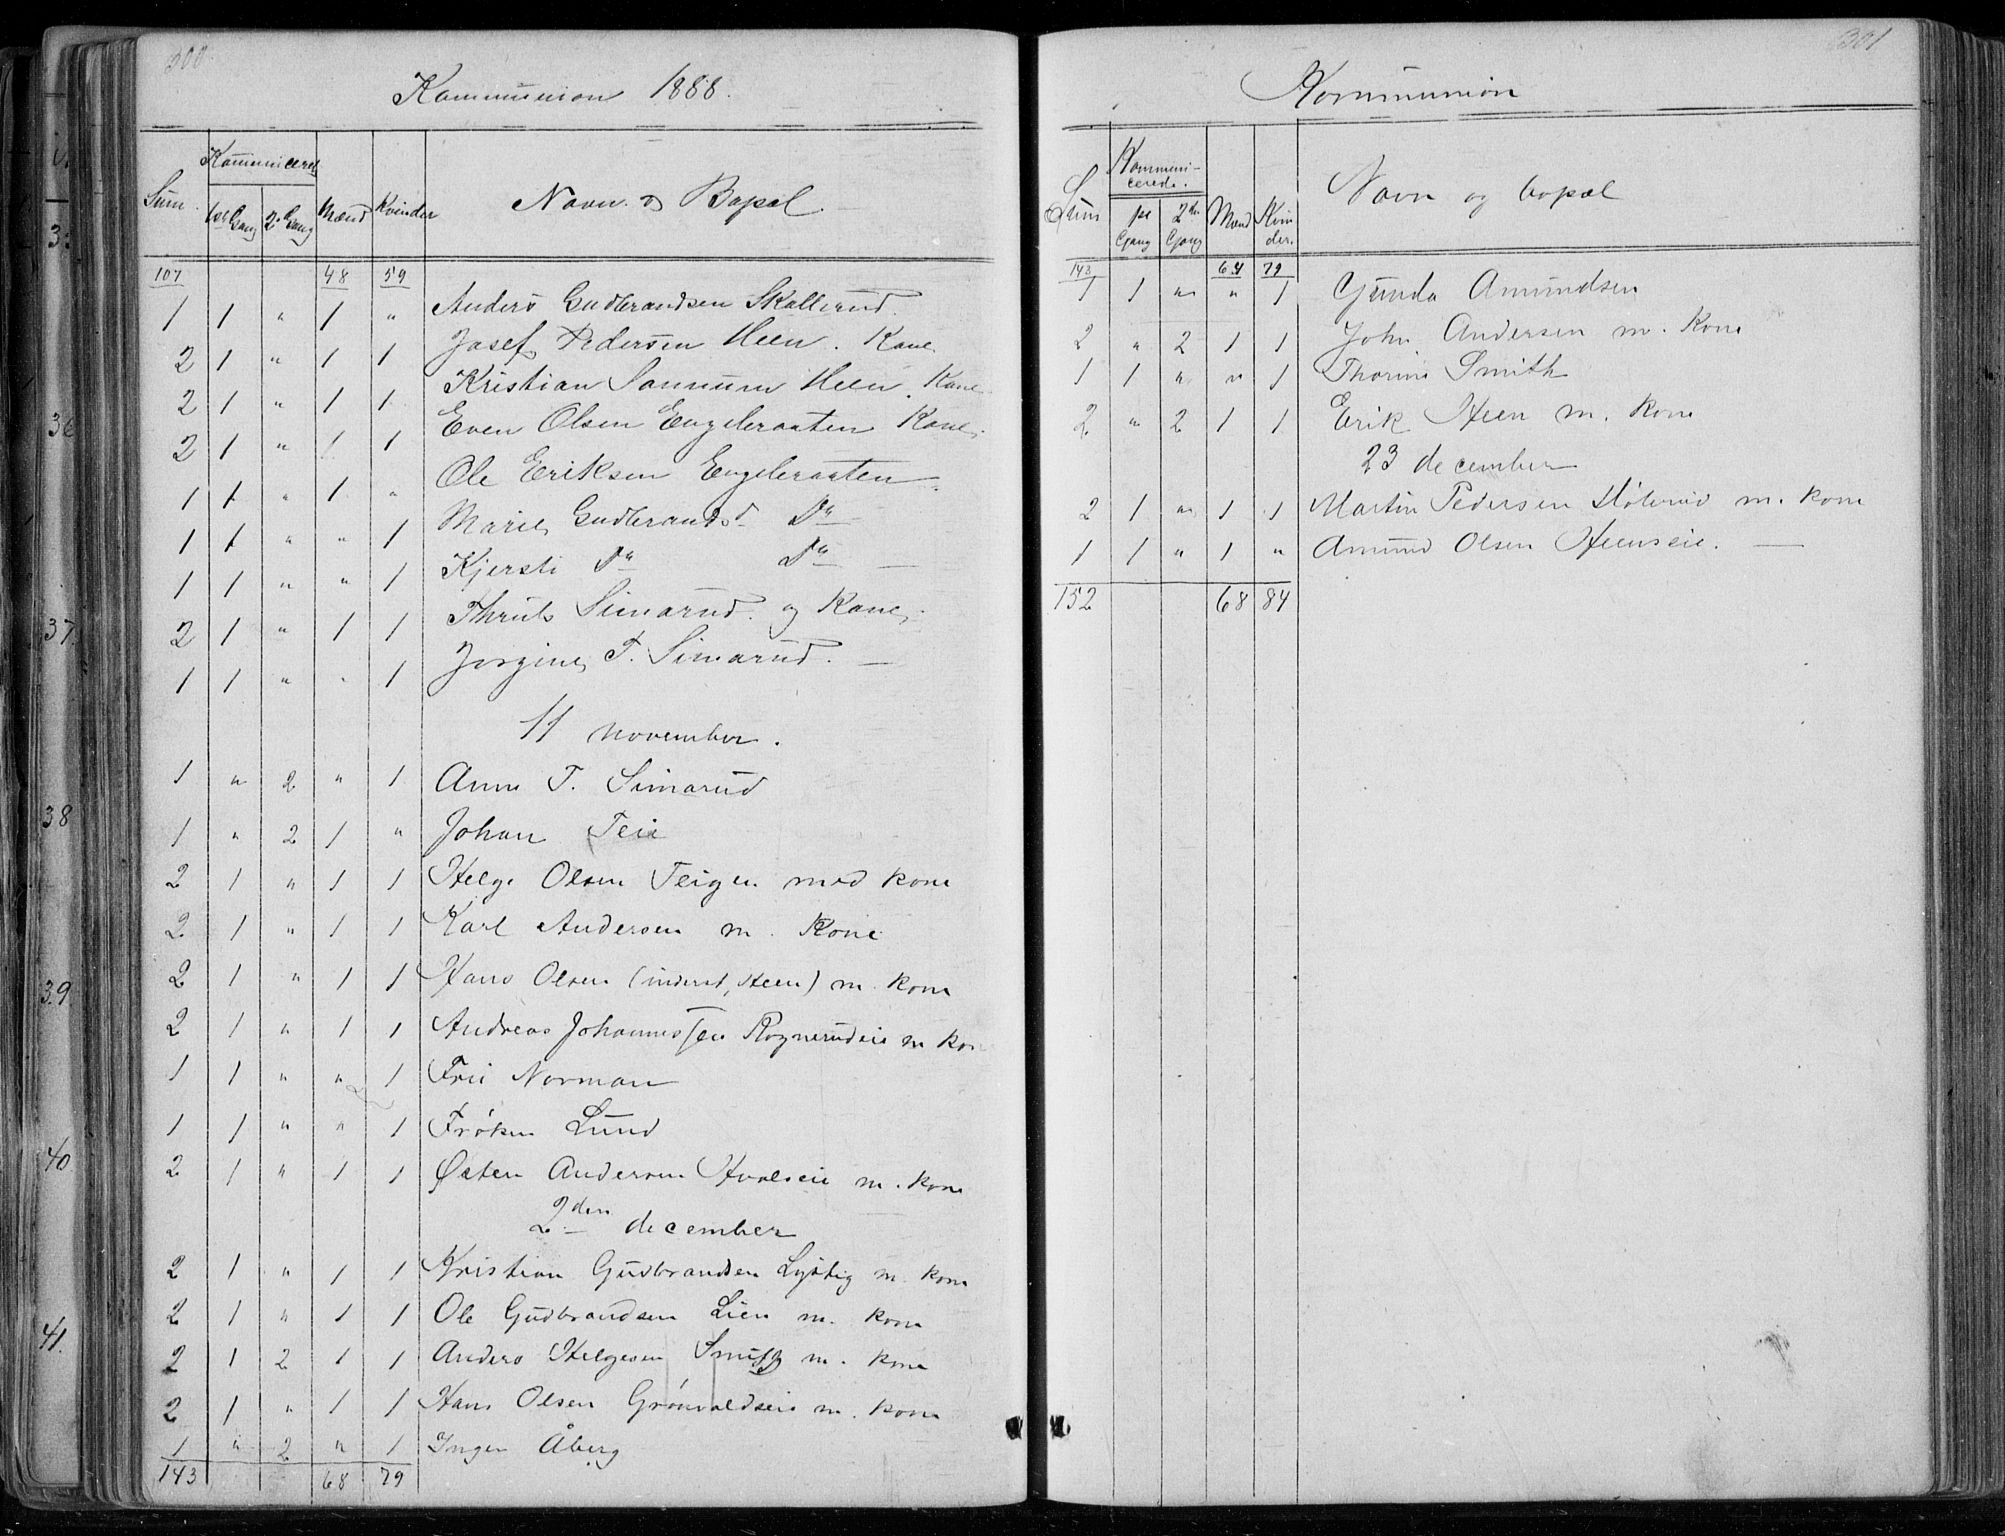 300.
Kommunion 1888.
Sum. Kommunicered 1ste Gang 2. Gang Mænd Kvinder Navn og Bopæl.
107 48 59
1 1 " 1 " Anders Gudbrandsen Skollerud.
2 1 " 1 1 Josef Pedersen Heen. Kone
2 1 " 1 1 Kristian Sonnum Heen. Kone
2 1 " 1 1 Even Olsen Engebraaten Kone.
1 1 " 1 " Ole Eriksen Engebraaten
1 1 " " 1 Marie Gudbrandsd. Do
1 1 " " 1 Kjersti Do Do
2 1 " 1 1 Thruls Simarud. og Kone.
1 1 " " 1 Jorgine T. Simarud.
11 november.
1 " 2 " 1 Anne T. Simarud
1 " 2 1 " Johan Teie
2 1 " 1 1 Helge Olsen Teigen med kone
2 1 " 1 1 Karl Andersen m. Kone
2 1 " 1 1 Hans Olsen (inderst, Heen) m. kone
2 1 " 1 1 Andreas Johannessen Rognerudeie m kon
1 1 " " 1 Fru Norman
1 1 " " 1 Frøken Lund
2 1 " 1 1 Østen Andersen Hvalseie m. kone
2den december
2 1 " 1 1 Kristian Gudbrandsen Lystig m. kone
2 1 " 1 1 Ole Gudbrandsen Lien m. kone
2 1 2 1 1 Anders Helgesen m. kone
2 1 " 1 1 Hans Olsen Grönvoldseie m. kone
1 " 2 " 1 Inger Åberg
143 68 79
301
Kommunion
Sum Kommunicerede. 1ste Gang 2den Gang Mænd Kvinder. Navn og bopæl
143 64 79
1 1 " " 1 Gunda Amundsen
2 " 2 1 1 John Andersen m. Kone
1 1 " " 1 Thorine Smith
2 " 2 1 1 Erik Heen m. kone
23 december
2 1 " 1 1 Martin Pedersen m. kone
1 1 " 1 " Amund Olsen Heenseie.
152 68 84
37.
38
39.
40
41.